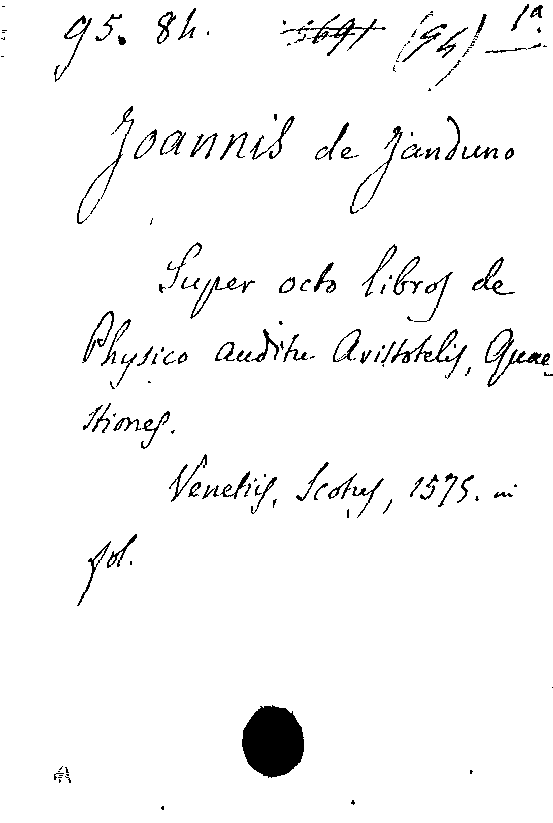 95. 8h. 5691 (95) 1a.
Joannis de Janduno
Super octo libros de
Physico auditu Aristotelis, Quae-
stiones.
Venetiis, Scotus, 1575. in
fol.